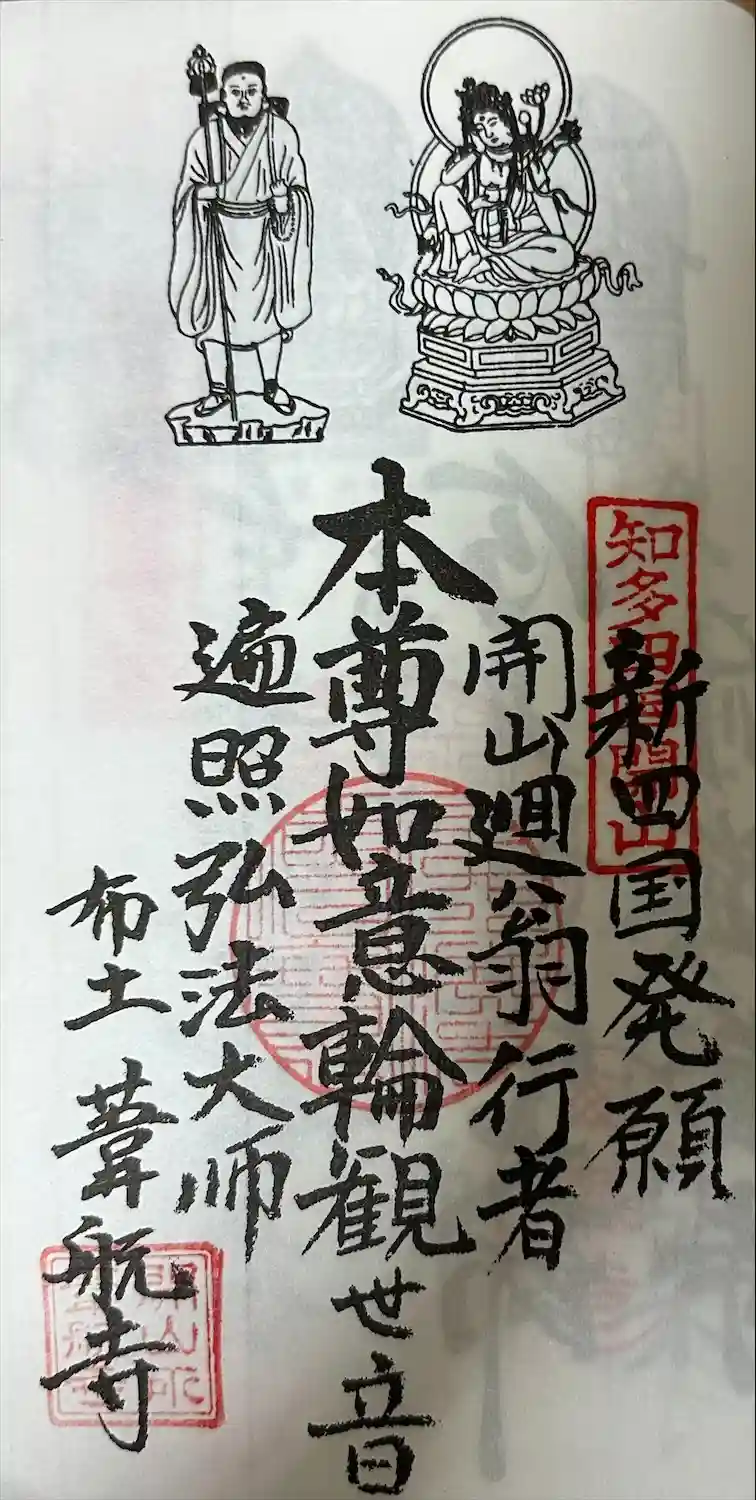 知多四国開山
新四国発願
開山廻翁行者
本尊如意輪観世音
遍照弘法大师
布土 葦航寺